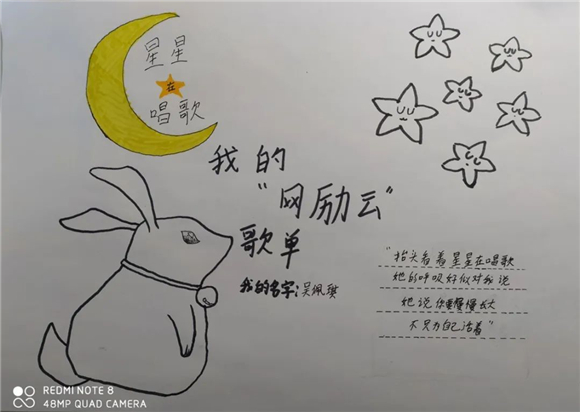 星星
在
唱歌
我的
“网励云”
歌单
我的名字:吴佩琪
“抬头看着星星在唱歌
她的呼吸好似对我说
她说你要慢慢长大
不只为自己活着”
REDMI NOTE 8
48MP QUAD CAMERA